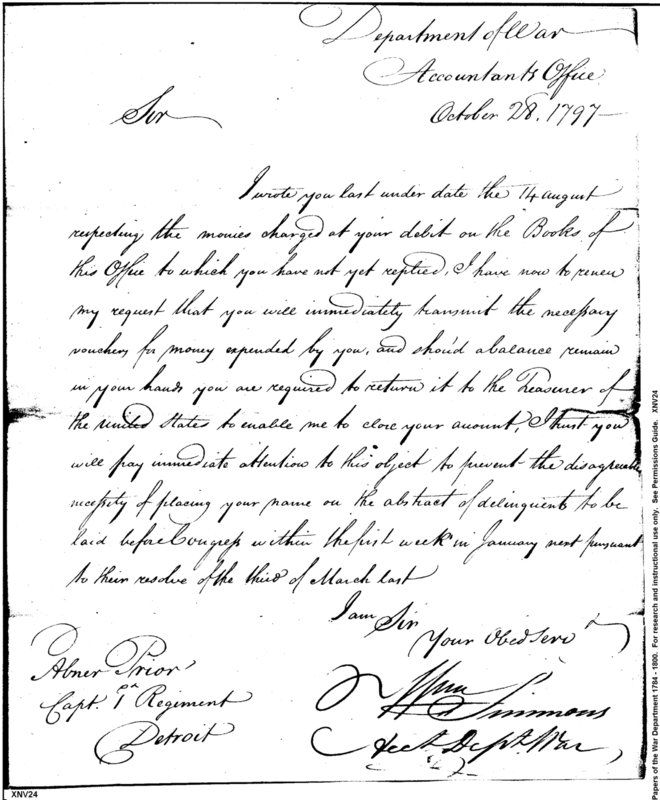 Department of War
Accountants Office
October 28. 1797
Sir
I wrote you last under date the 14 august
respecting the monies charged at your debit on the Books of
this Office to which you have not yet replied, I have now to renew
my request that you will immediately transmit the necessary
vouchers for money expended by you, and shou'd a balance remain
in your hands you are required to return it to the Treasurer of
the united States to enable me to close your amount, I trust you
will pay immediate attention to this object to prevent the disagreeable
necessity of placing your name on the abstract of delinquents to be
laid before Congress within the first week in January next pursuant
to their resolve of the third of March last
I am Sir
Your Obed Serv
Abner Prior
Capt. 1 Regiment
Detroit
Wm Simmons
Acct. Dept. War
XNV24
Papers of the War Department 1784 - 1800. For research and instructional use only. See Permissions Guide. XNV24